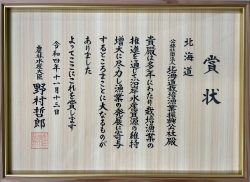 賞状
北海道
公益社団法人 北海道栽培漁業振興公社 殿
貴殿は多年にわたり栽培漁業の
推進を通じ沿岸水産資源の維持
増大に尽力し漁業の発展に寄与
するところまことに大なるものが
ありました
よってここにこれを賞します
令和四年十一月十三日
農林水産大臣 野村哲郎